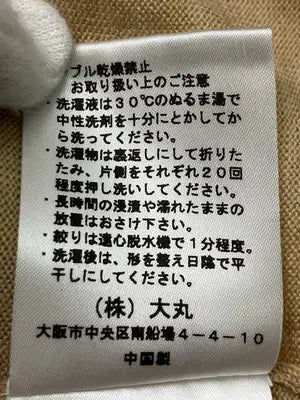 ブル乾燥禁止
お取り扱い上のご注意
・洗濯液は30℃のぬるま湯で
中性洗剤を十分にとかしてか
ら洗ってください。
・洗濯物は裏返しにして折りた
たみ、片側をそれぞれ20回
程度押し洗いしてください。
・長時間の浸漬や濡れたままの
放置はおさけ下さい。
・絞りは遠心脱水機で1分程度。
・洗濯後は、形を整え日陰で平
干しにしてください。
(株)大丸
大阪市中央区南船場4-4-10
中国製